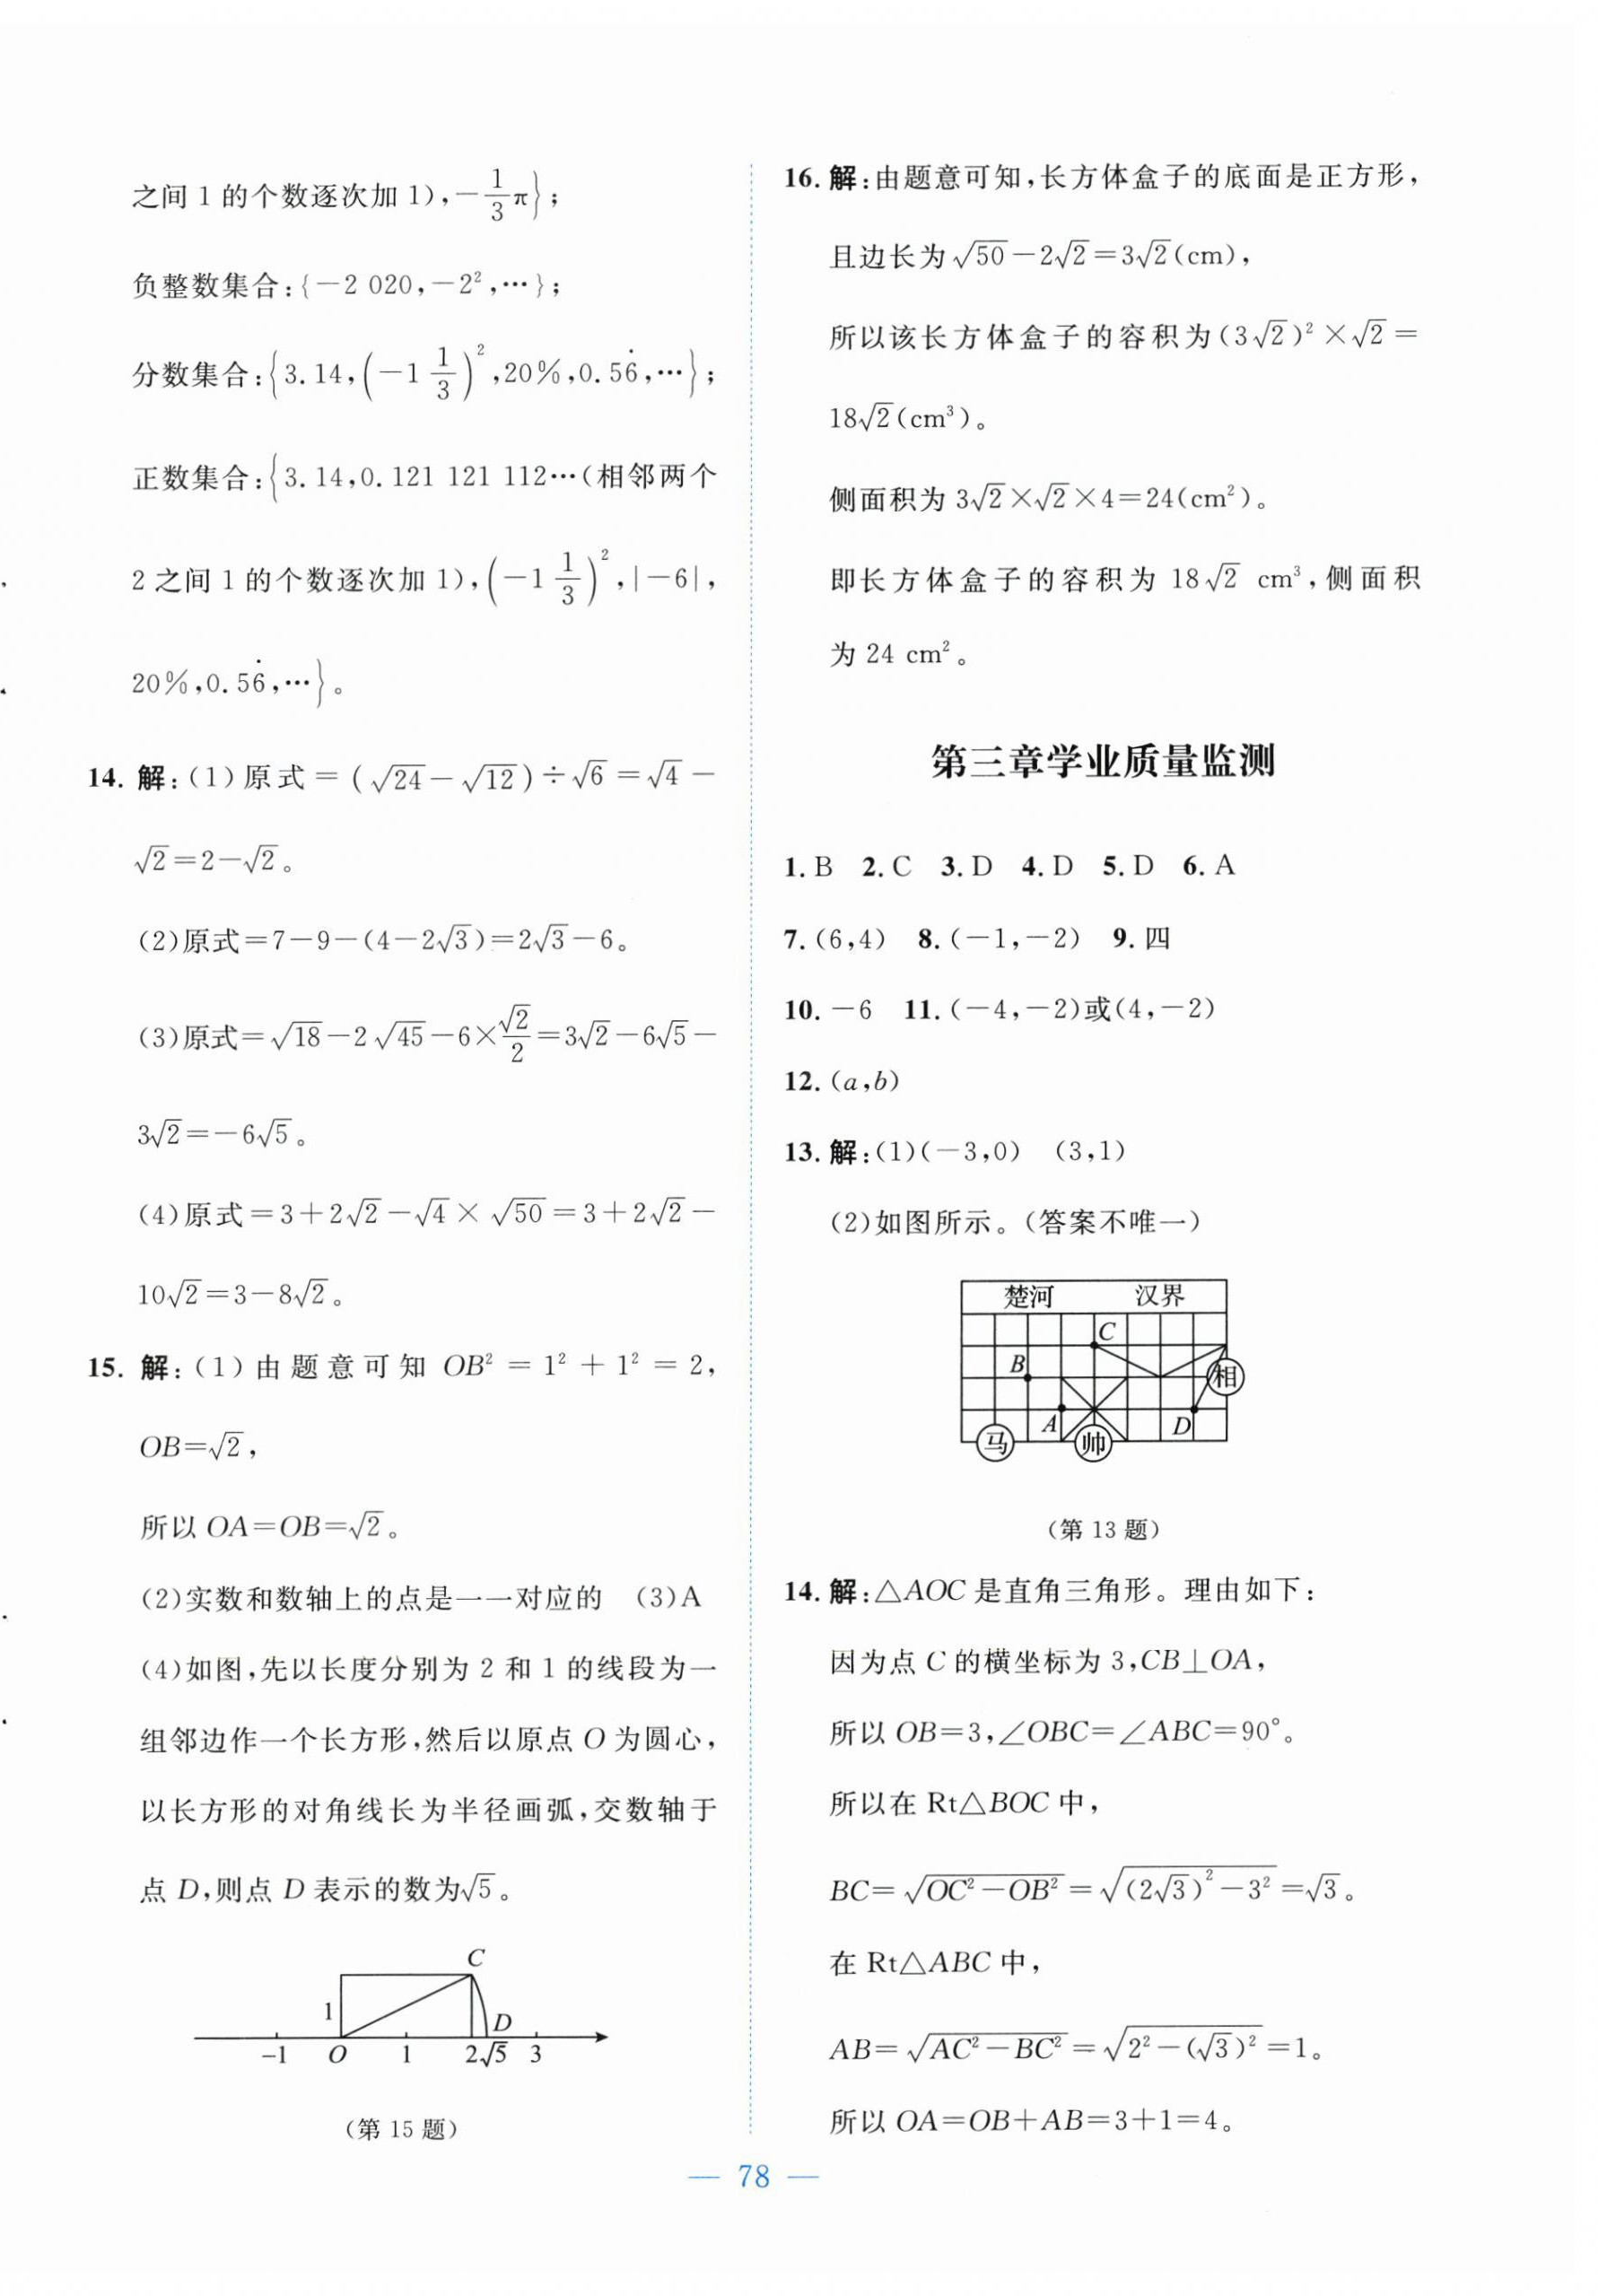 之间 1 的个数逐次加 1),－$\frac{1}{3}$π};
负整数集合:{－2 020,－2²,…};
分数集合:{3.14,(－1$\frac{1}{3}$)²,20%,0.56̇,…};
正数集合:{3.14,0.121 121 112…(相邻两个
2 之间 1 的个数逐次加 1),(－1$\frac{1}{3}$)²,|－6|,
20%,0.56̇,…}。
14. 解:(1)原式＝(√24－√12)÷√6＝√4－
√2＝2－√2。
(2)原式＝7－9－(4－2√3)＝2√3－6。
(3)原式＝√18－2√45－6×$\frac{√2}{2}$＝3√2－6√5－
3√2＝－6√5。
(4)原式＝3＋2√2－√4×√50＝3＋2√2－
10√2＝3－8√2。
15. 解:(1)由题意可知 OB²＝1²＋1²＝2,
OB＝√2,
所以 OA＝OB＝√2。
(2)实数和数轴上的点是一一对应的 (3)A
(4)如图,先以长度分别为 2 和 1 的线段为一
组邻边作一个长方形,然后以原点 O 为圆心,
以长方形的对角线长为半径画弧,交数轴于
点 D,则点 D 表示的数为√5。
C
1
D
－1 O 1 2 √5 3
(第 15 题)
16. 解:由题意可知,长方体盒子的底面是正方形,
且边长为√50－2√2＝3√2(cm),
所以该长方体盒子的容积为(3√2)²×√2＝
18√2(cm³)。
侧面积为 3√2×√2×4＝24(cm²)。
即长方体盒子的容积为 18√2 cm³,侧面积
为 24 cm²。
第三章学业质量监测
1. B 2. C 3. D 4. D 5. D 6. A
7. (6,4) 8. (－1,－2) 9. 四
10. －6 11. (－4,－2)或(4,－2)
12. (a,b)
13. 解:(1)(－3,0) (3,1)
(2)如图所示。(答案不唯一)
楚河 汉界
C
B
相
A D
马 帅
(第 13 题)
14. 解:△AOC 是直角三角形。理由如下:
因为点 C 的横坐标为 3,CB⊥OA,
所以 OB＝3,∠OBC＝∠ABC＝90°。
所以在 Rt△BOC 中,
BC＝√(OC²－OB²)＝√((2√3)²－3²)＝√3。
在 Rt△ABC 中,
AB＝√(AC²－BC²)＝√(2²－(√3)²)＝1。
所以 OA＝OB＋AB＝3＋1＝4。
— 78 —